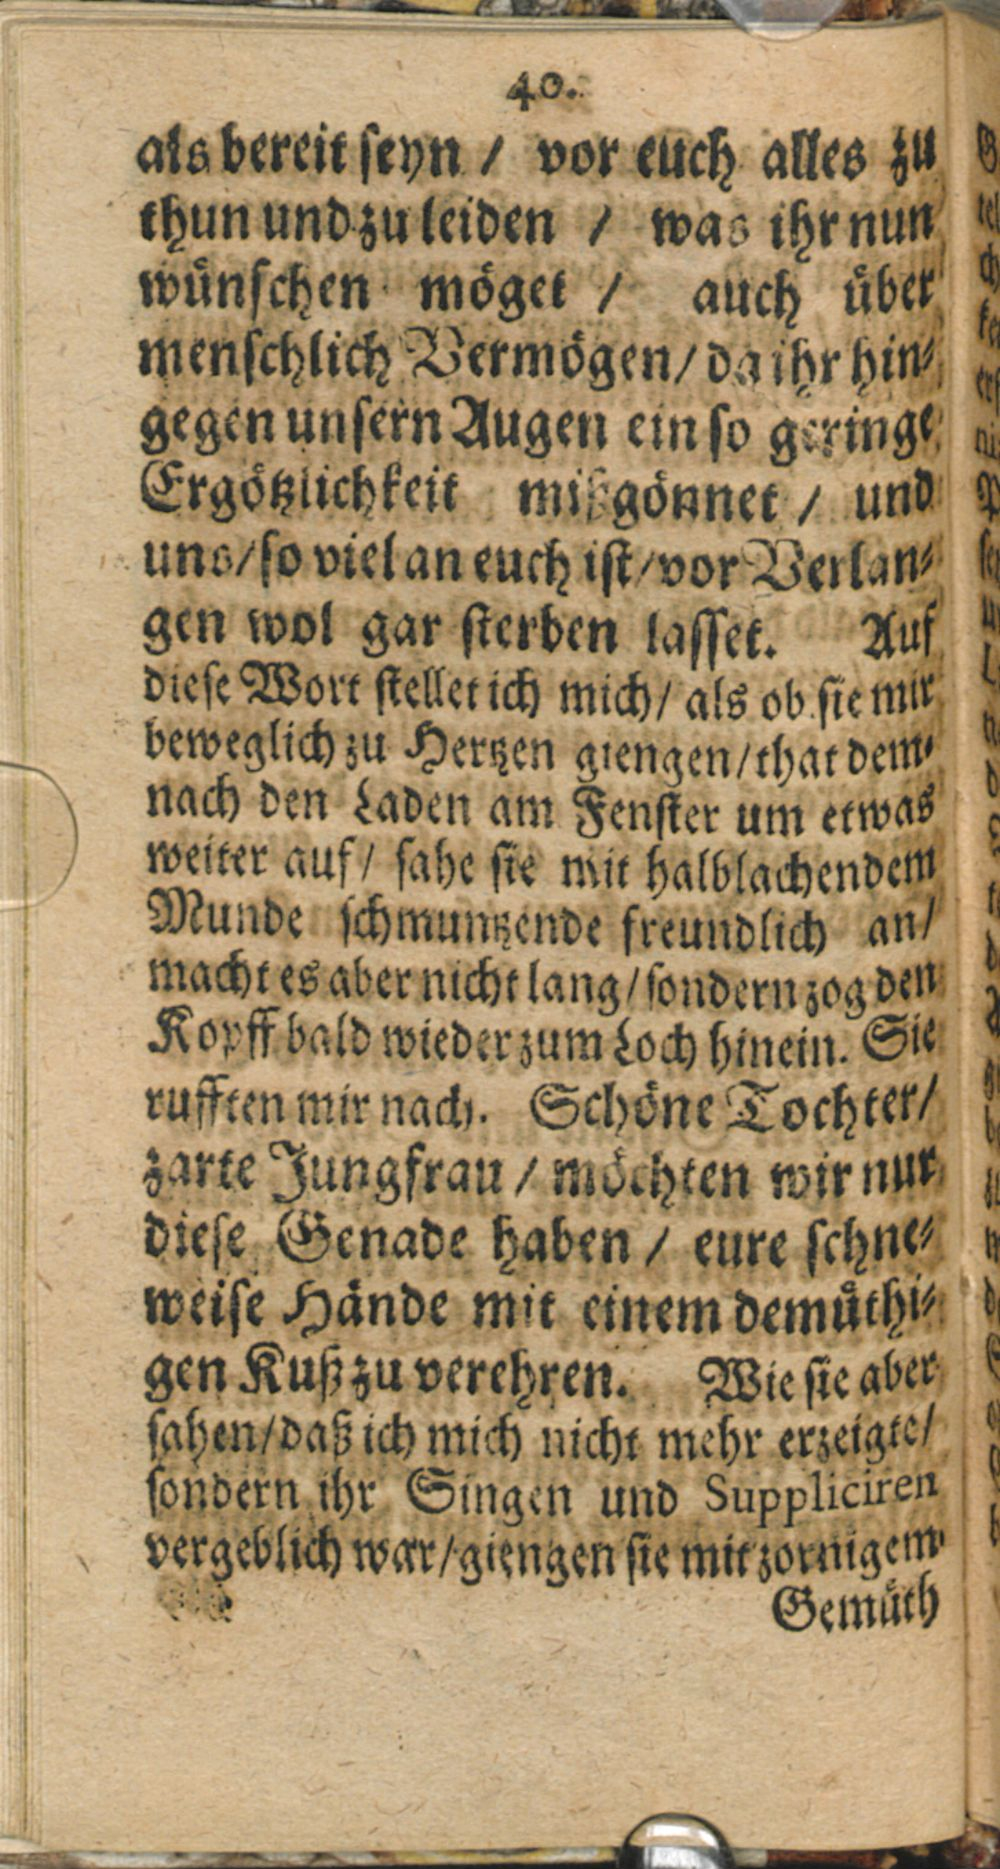 40.
als bereit seyn / vor euch alles zu
thun und zu leiden / was ihr nun
wünschen möget / auch über
menschlich Vermögen / da ihr hin⸗
gegen unsern Augen ein so geringe
Ergötzlichkeit mißgönnet / und
uns / so viel an euch ist / vor Verlan⸗
gen wol gar sterben lasset. Auf
diese Wort stellet ich mich / als ob sie mir
beweglich zu Hertzen giengen / that dem⸗
nach den Laden am Fenster um etwas
weiter auf / sahe sie mit halblachendem
Munde schmuntzende freundlich an /
macht es aber nicht lang / sondern zog den
Kopff bald wieder zum Loch hinein. Sie
rufften mir nach. Schöne Tochter /
zarte Jungfrau / möchten wir nur
diese Genade haben / eure schne⸗
weise Hände mit einem demüthi⸗
gen Kuß zu verehren. Wie sie aber
sahen / daß ich mich nicht mehr erzeigte /
sondern ihr Singen und Suppliciren
vergeblich war / giengen sie mit zornigem
Gemüth